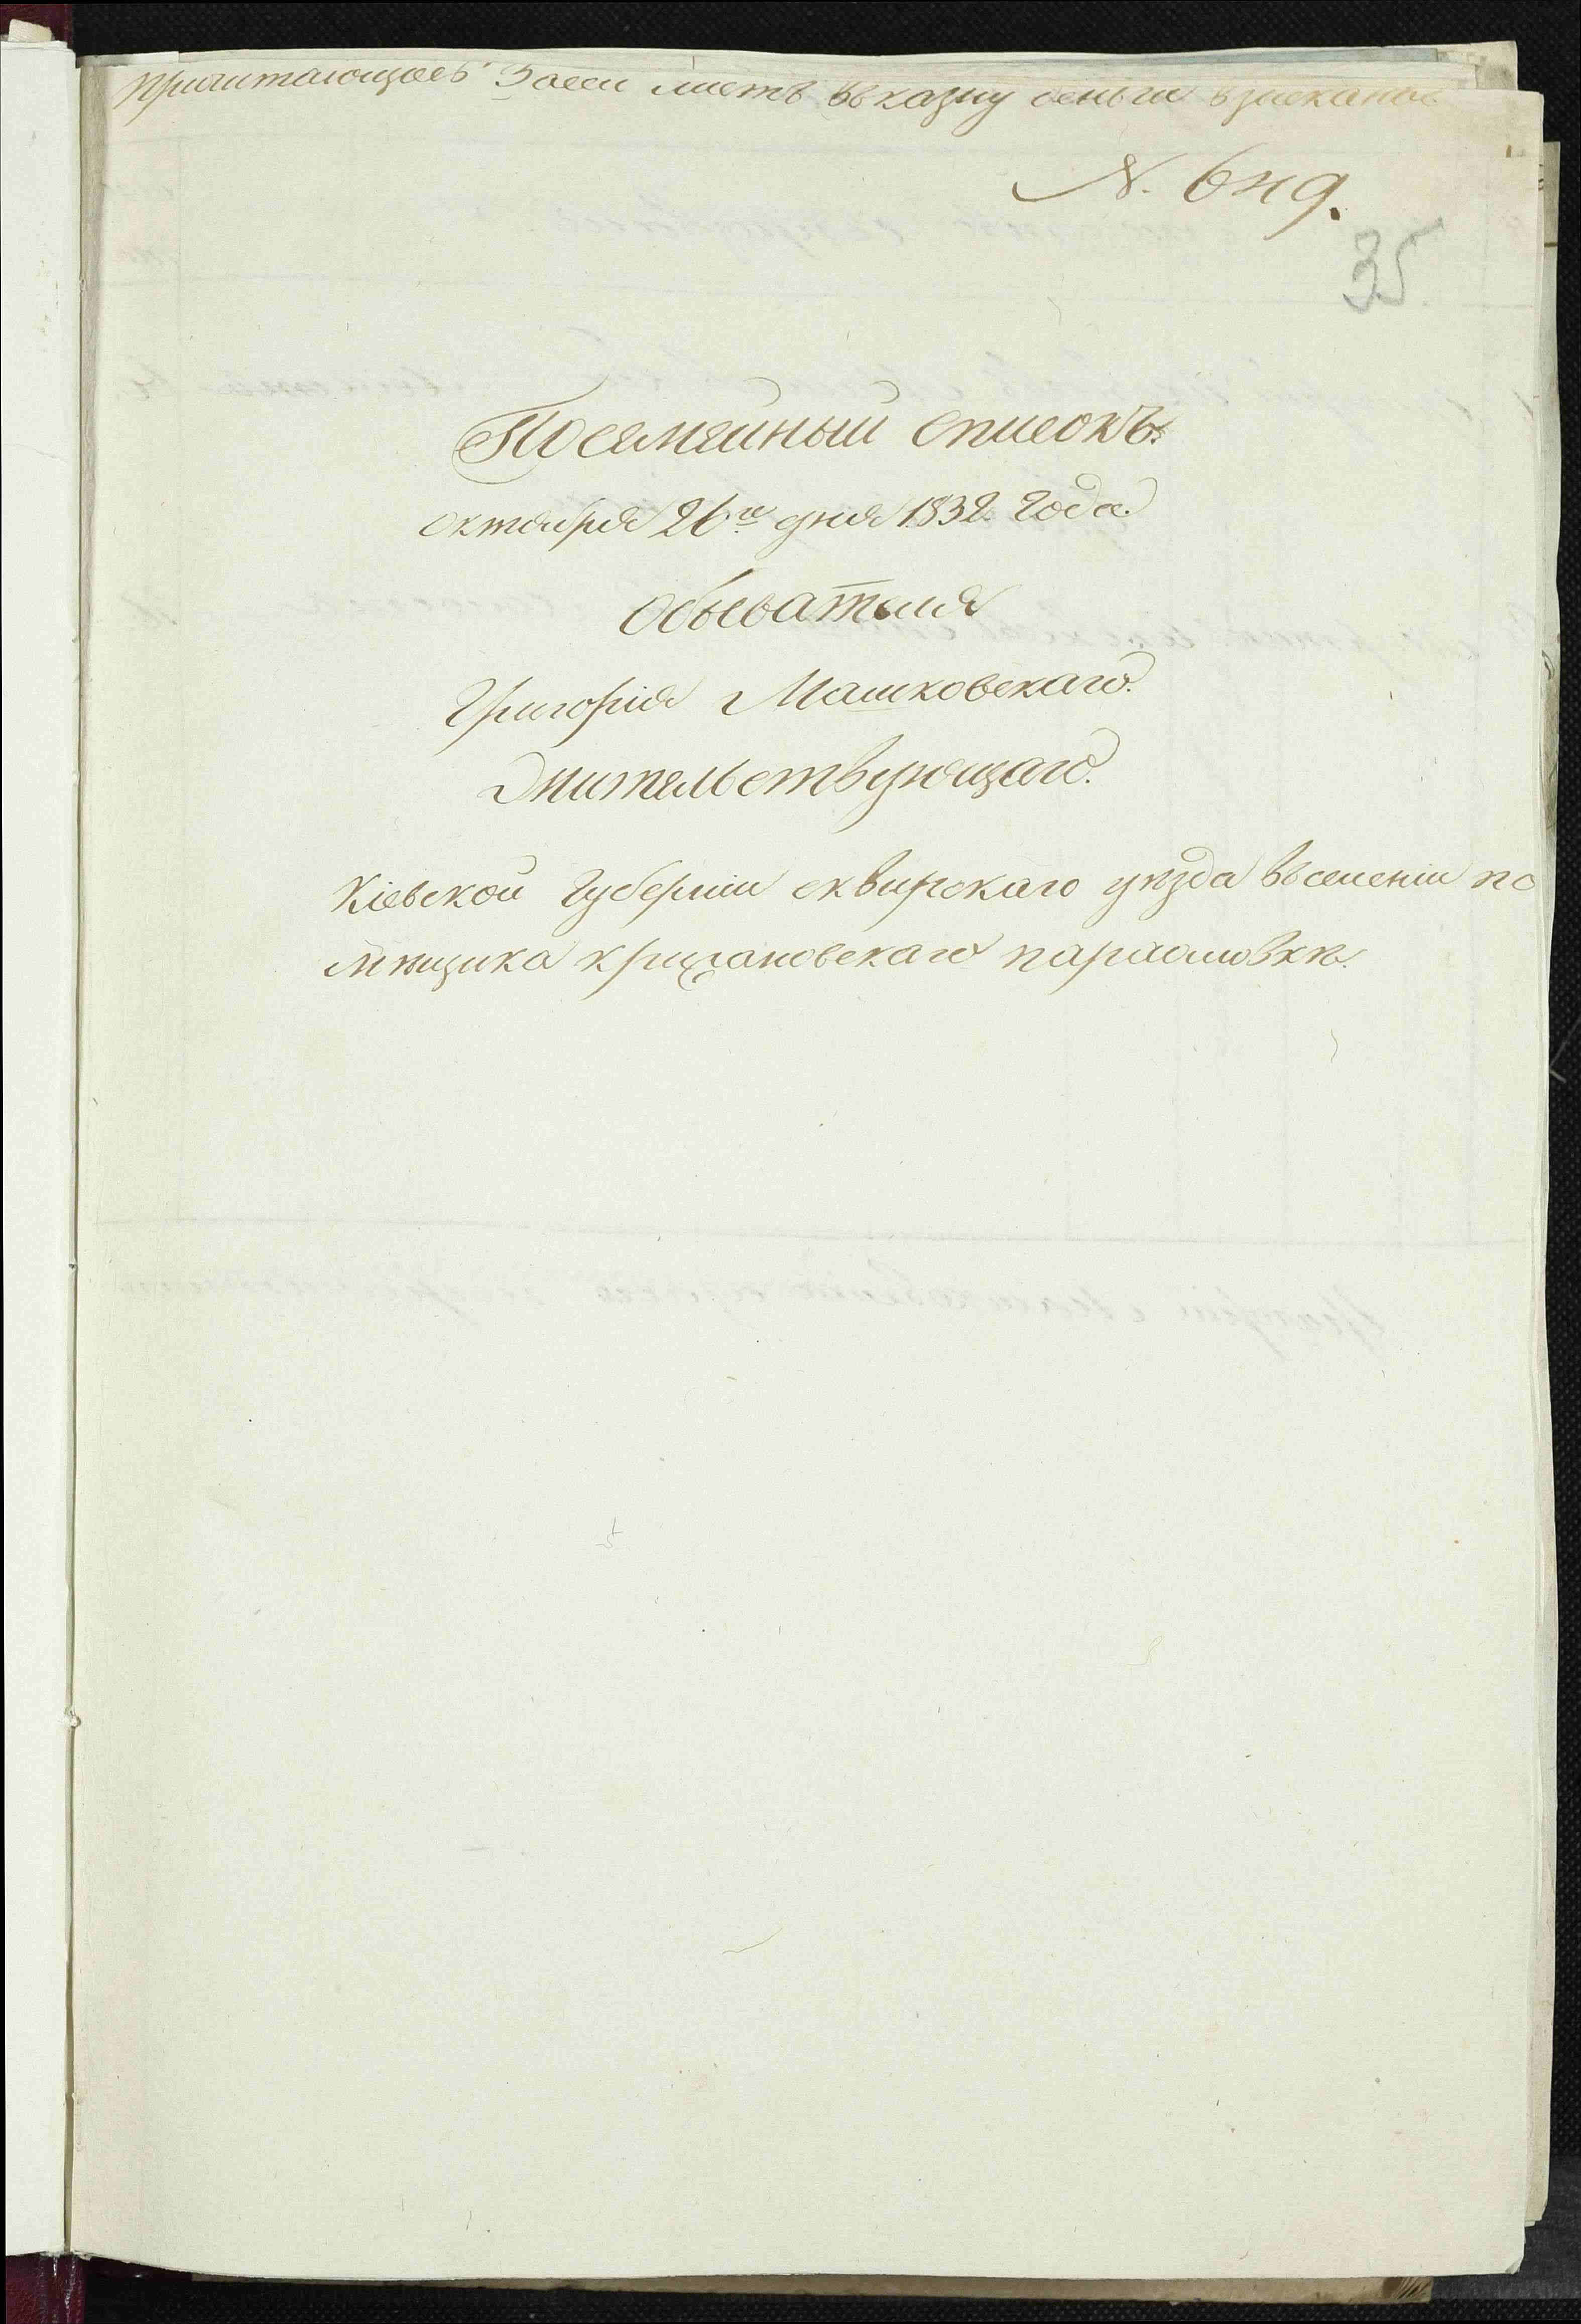 причитающіесъ За сей листъ въ казну деньги взысканы
N. 6й 9.
35
Посемейный списокъ.
октября 26го дня 1832 года.
Обывателя
Григорія Машковскаго.
Жительствующаго.
Кіевской Губерніи сквирскаго уѣзда въ селеніи по
мѣщика крижановскаго